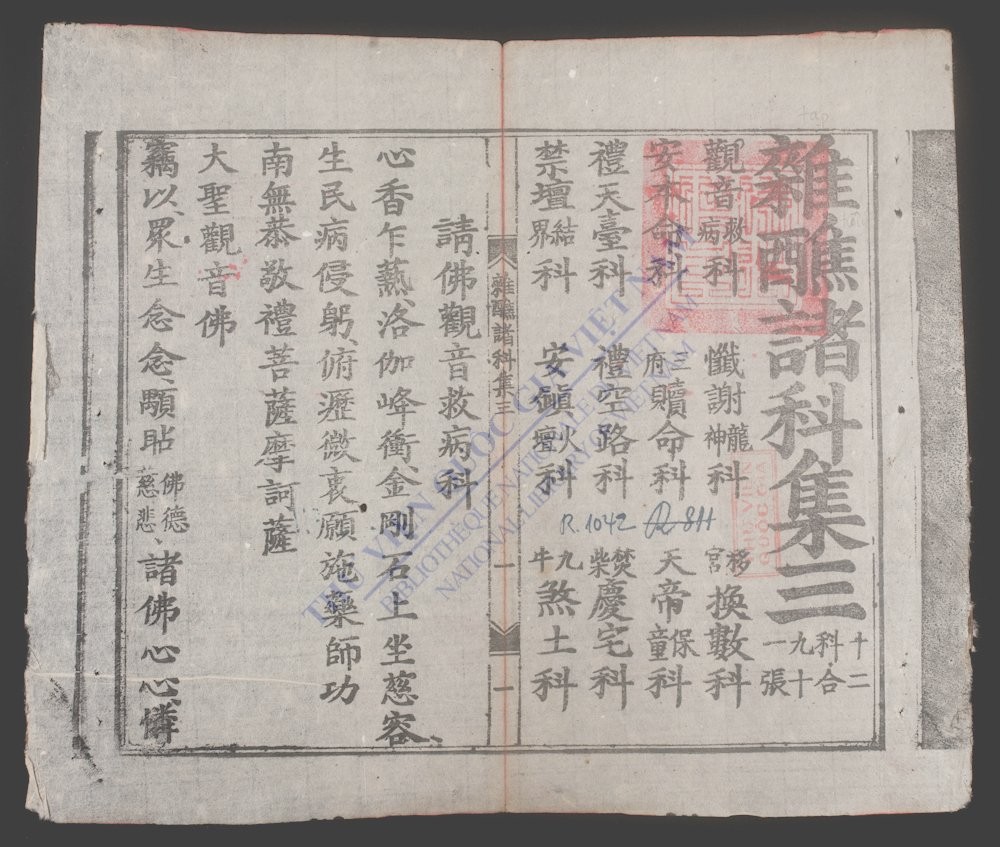 雜醮諸科集三 十二科合九十一張
觀音救病科 懺謝龍神科 移宮換數科
安本命科 三府贖命科 天帝保童科
禮天臺科 禮空路科 焚柴慶宅科
禁壇結界科 安鎮火壇科 九牛煞土科
雜醮諸科集三 一 一
請佛觀音救病科
心香乍爇洛伽峰衝金剛石上坐慈容
生民病侵躬俯瀝微衷願施藥師功
南無恭敬禮菩薩摩訶薩
大聖觀音佛
竊以眾生念念顒貼佛德慈悲諸佛心心憐
R.1042
THƯ VIỆN QUỐC GIA VIỆT NAM
BIBLIOTHÈQUE NATIONALE DU VIETNAM
NATIONAL LIBRARY OF VIETNAM
THƯ VIỆN
QUỐC GIA